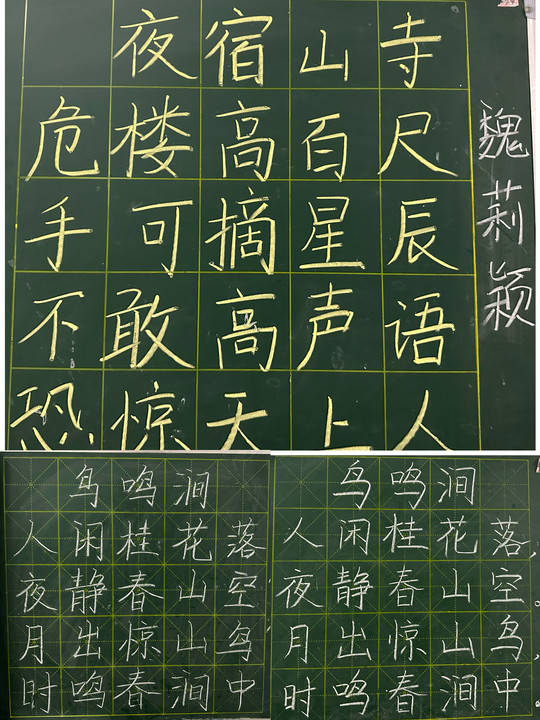 夜宿山寺
危楼高百尺
手可摘星辰
不敢高声语
恐惊天上人
魏莉颖
鸟鸣涧
人闲桂花落
夜静春山空
月出惊山鸟
时鸣春涧中
鸟鸣涧
人闲桂花落，
夜静春山空
月出惊山鸟，
时鸣春涧中